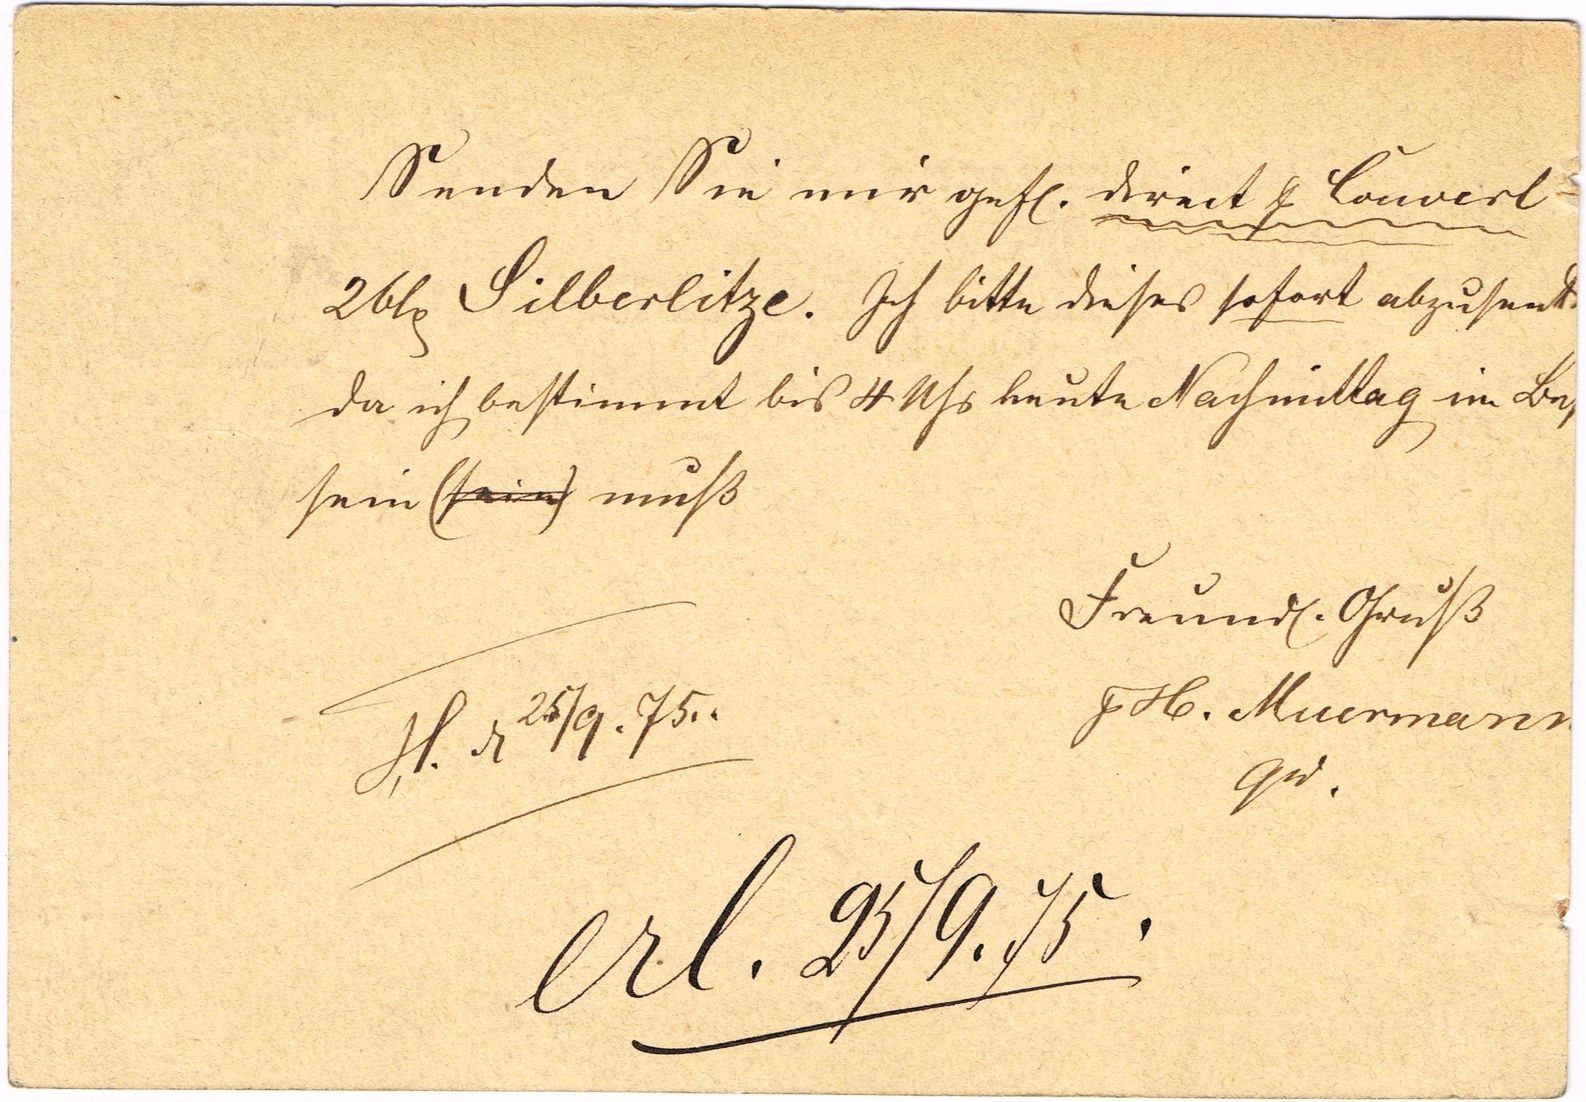 Senden Sie mir gefl. direct p Couvert
Silberlitze. Ich bitte dieses sofort abzusend
da ich bestimmt bis 4 Uhr heute Nachmittag im Bes
sein (sein) muß
Freundl. Gruß
p H. Muermann
H. d 25/9.75.
erl. 25/9.75.